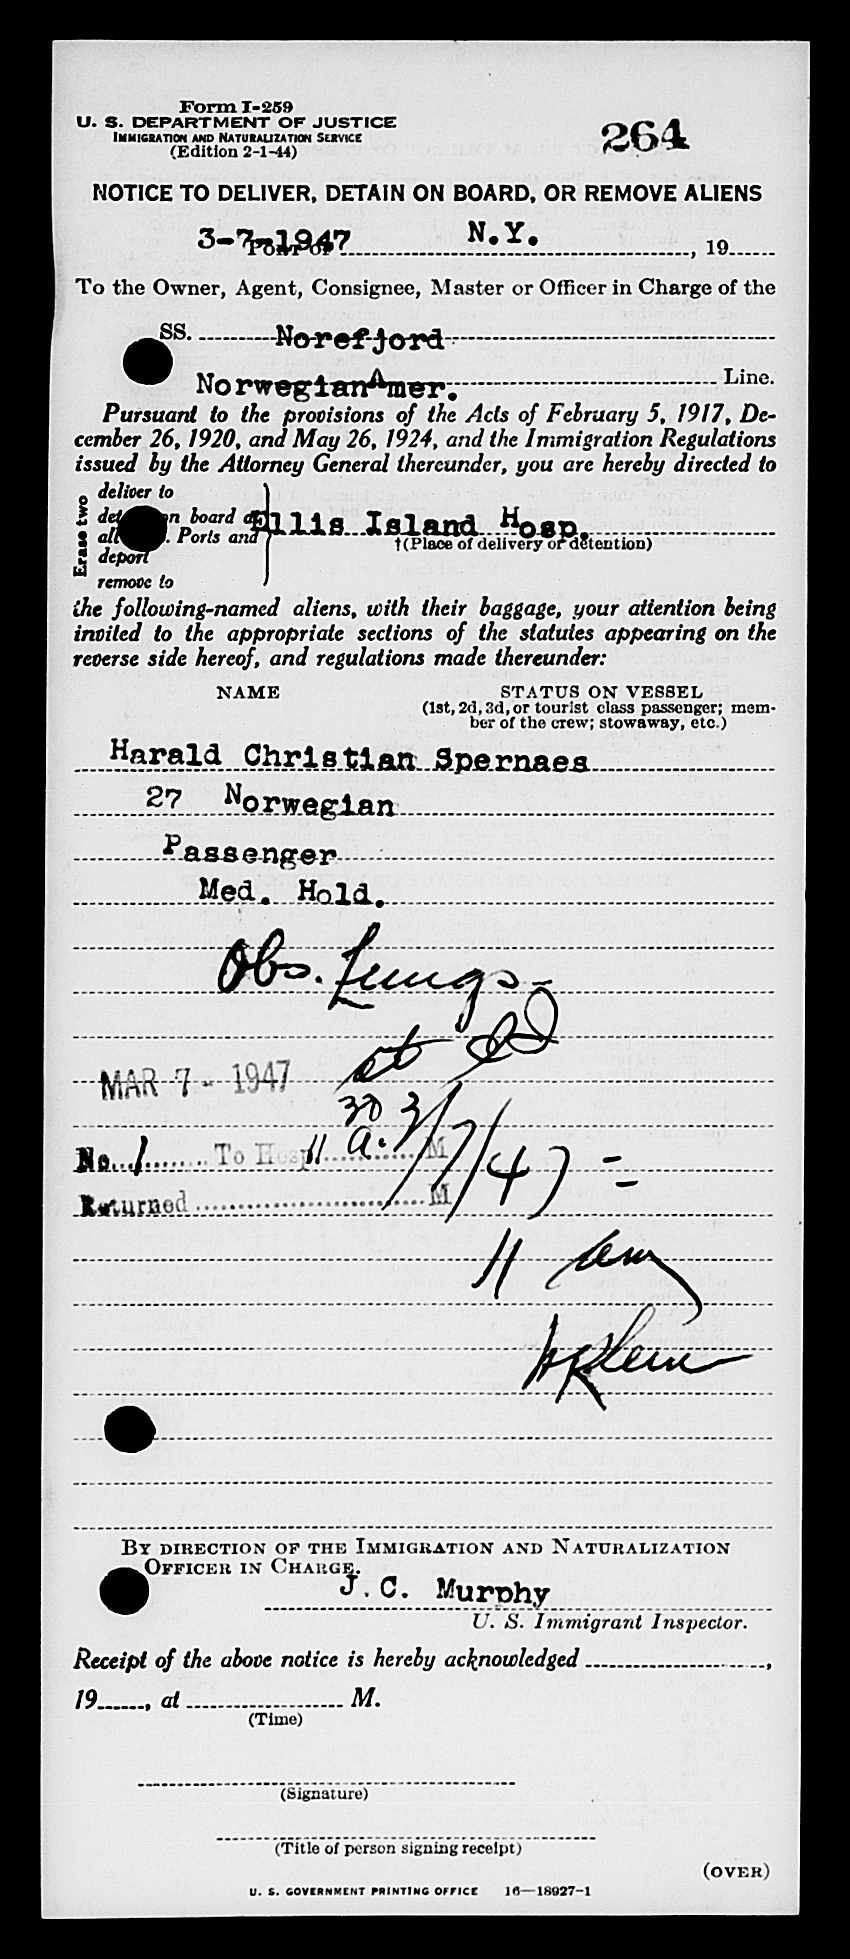 Form I-259
U. S. DEPARTMENT OF JUSTICE
IMMIGRATION AND NATURALIZATION SERVICE
(Edition 2-1-44)
264
NOTICE TO DELIVER, DETAIN ON BOARD, OR REMOVE ALIENS
3-7-1947 N.Y.
PORT OF , 19
To the Owner, Agent, Consignee, Master or Officer in Charge of the
SS. Norefjord
Norwegian Amer. Line.
Pursuant to the provisions of the Acts of February 5, 1917, De-
cember 26, 1920, and May 26, 1924, and the Immigration Regulations
issued by the Attorney General thereunder, you are hereby directed to
Erase two
deliver to
on board
Ports and
deport
remove to
Ellis Island Hosp.
†(Place of delivery or detention)
the following-named aliens, with their baggage, your attention being
invited to the appropriate sections of the statutes appearing on the
reverse side hereof, and regulations made thereunder:
NAME STATUS ON VESSEL
(1st, 2d, 3d, or tourist class passenger; mem-
ber of the crew; stowaway, etc.)
Harald Christian Spernaes
27 Norwegian
Passenger
Med. Hold.
Obs. Lungs-
at
MAR 7 - 1947
30
a. 3/7/47 =
No. 1 To Hosp 11 M
Returned M
11 am
BY DIRECTION OF THE IMMIGRATION AND NATURALIZATION
OFFICER IN CHARGE.
J. C. Murphy
U. S. Immigrant Inspector.
Receipt of the above notice is hereby acknowledged ,
19 , at M.
(Time)
(Signature)
(Title of person signing receipt)
(OVER)
U. S. GOVERNMENT PRINTING OFFICE 16—18927-1